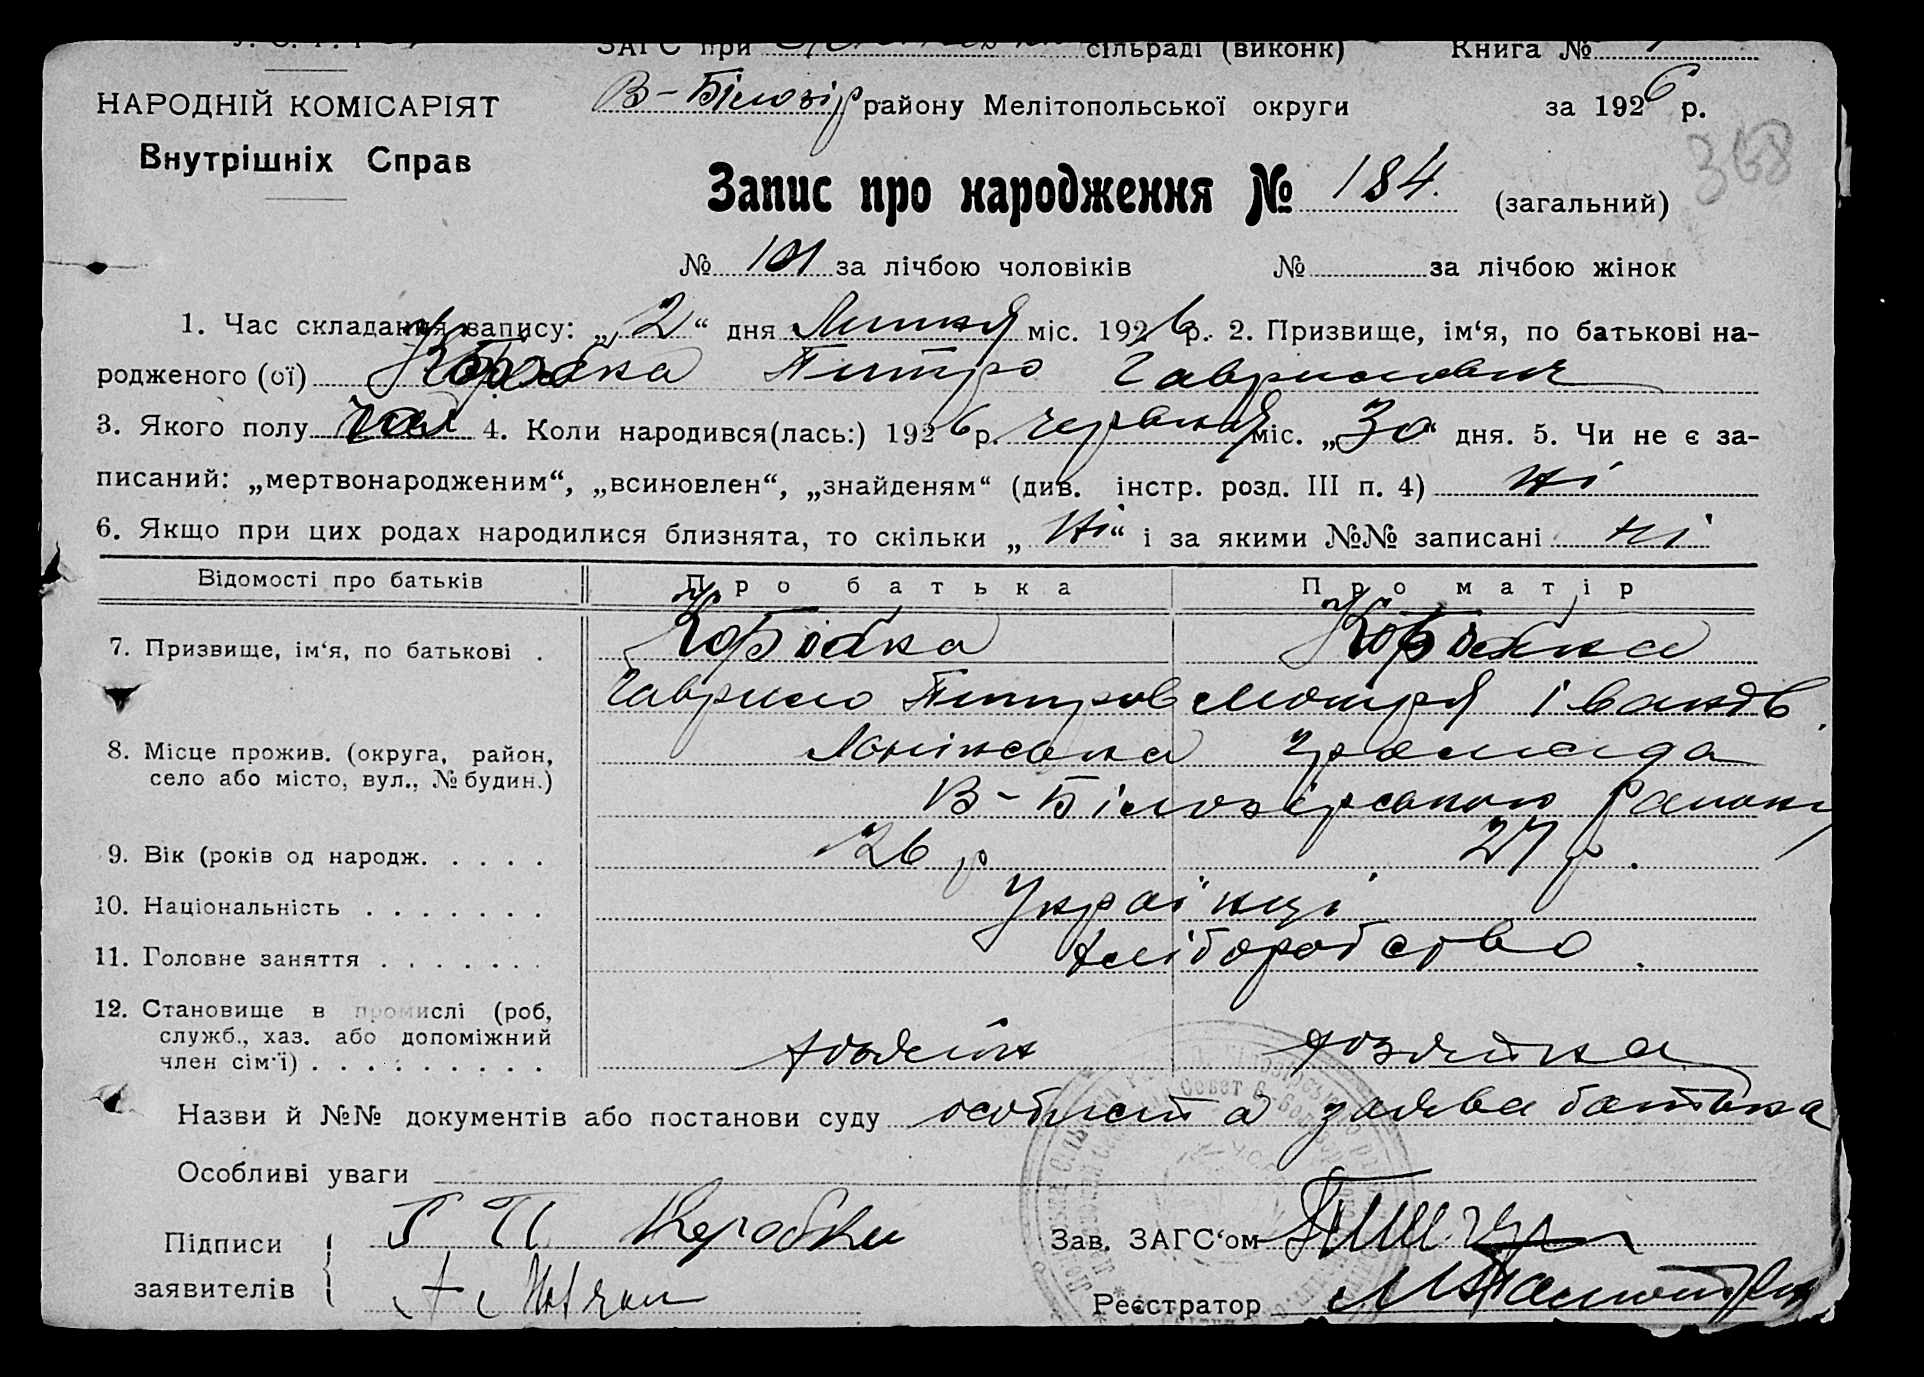 ЗАГС при сільраді (виконк) Книга №
НАРОДНІЙ КОМІСАРІЯТ
В-Білозір району Мелітопольської округи за 1926 р.
Внутрішніх Справ
368
Запис про народження № 184. (загальний)
№ 101 за лічбою чоловіків № за лічбою жінок
1. Час складання запису: „2“ дня Липня міс. 1926 р. 2. Призвище, ім‘я, по батькові на-
родженого (ої) Коробка Питро Гаврилович
3. Якого полу чол 4. Коли народився(лась:) 1926 р. червня міс. „30“ дня. 5. Чи не є за-
писаний: „мертвонародженим“, „всиновлен“, „знайденям“ (див. інстр. розд. III п. 4) ні
6. Якщо при цих родах народилися близнята, то скільки „ні“ і за якими №№ записані ні
Відомості про батьків Про батька Про матір
7. Призвище, ім‘я, по батькові . Коробка Коробка
Гаврило Питров Мотря Іванов.
8. Місце прожив. (округа, район, громада
село або місто, вул., № будин.) В-Білозірського району
9. Вік (років од народж. . . . . 26 р 27 р.
10. Національність . . . . . . . Українці
11. Головне заняття . . . . . . . хліборобство.
12. Становище в промислі (роб,
служб., хаз. або допоміжний хозяїн хозяйка
член сім‘ї) . . . . . . . . . .
Назви й №№ документів або постанови суду особиста заява батька
Особливі уваги
Підписи Г П Коробки Зав. ЗАГС‘ом
заявителів Реєстратор